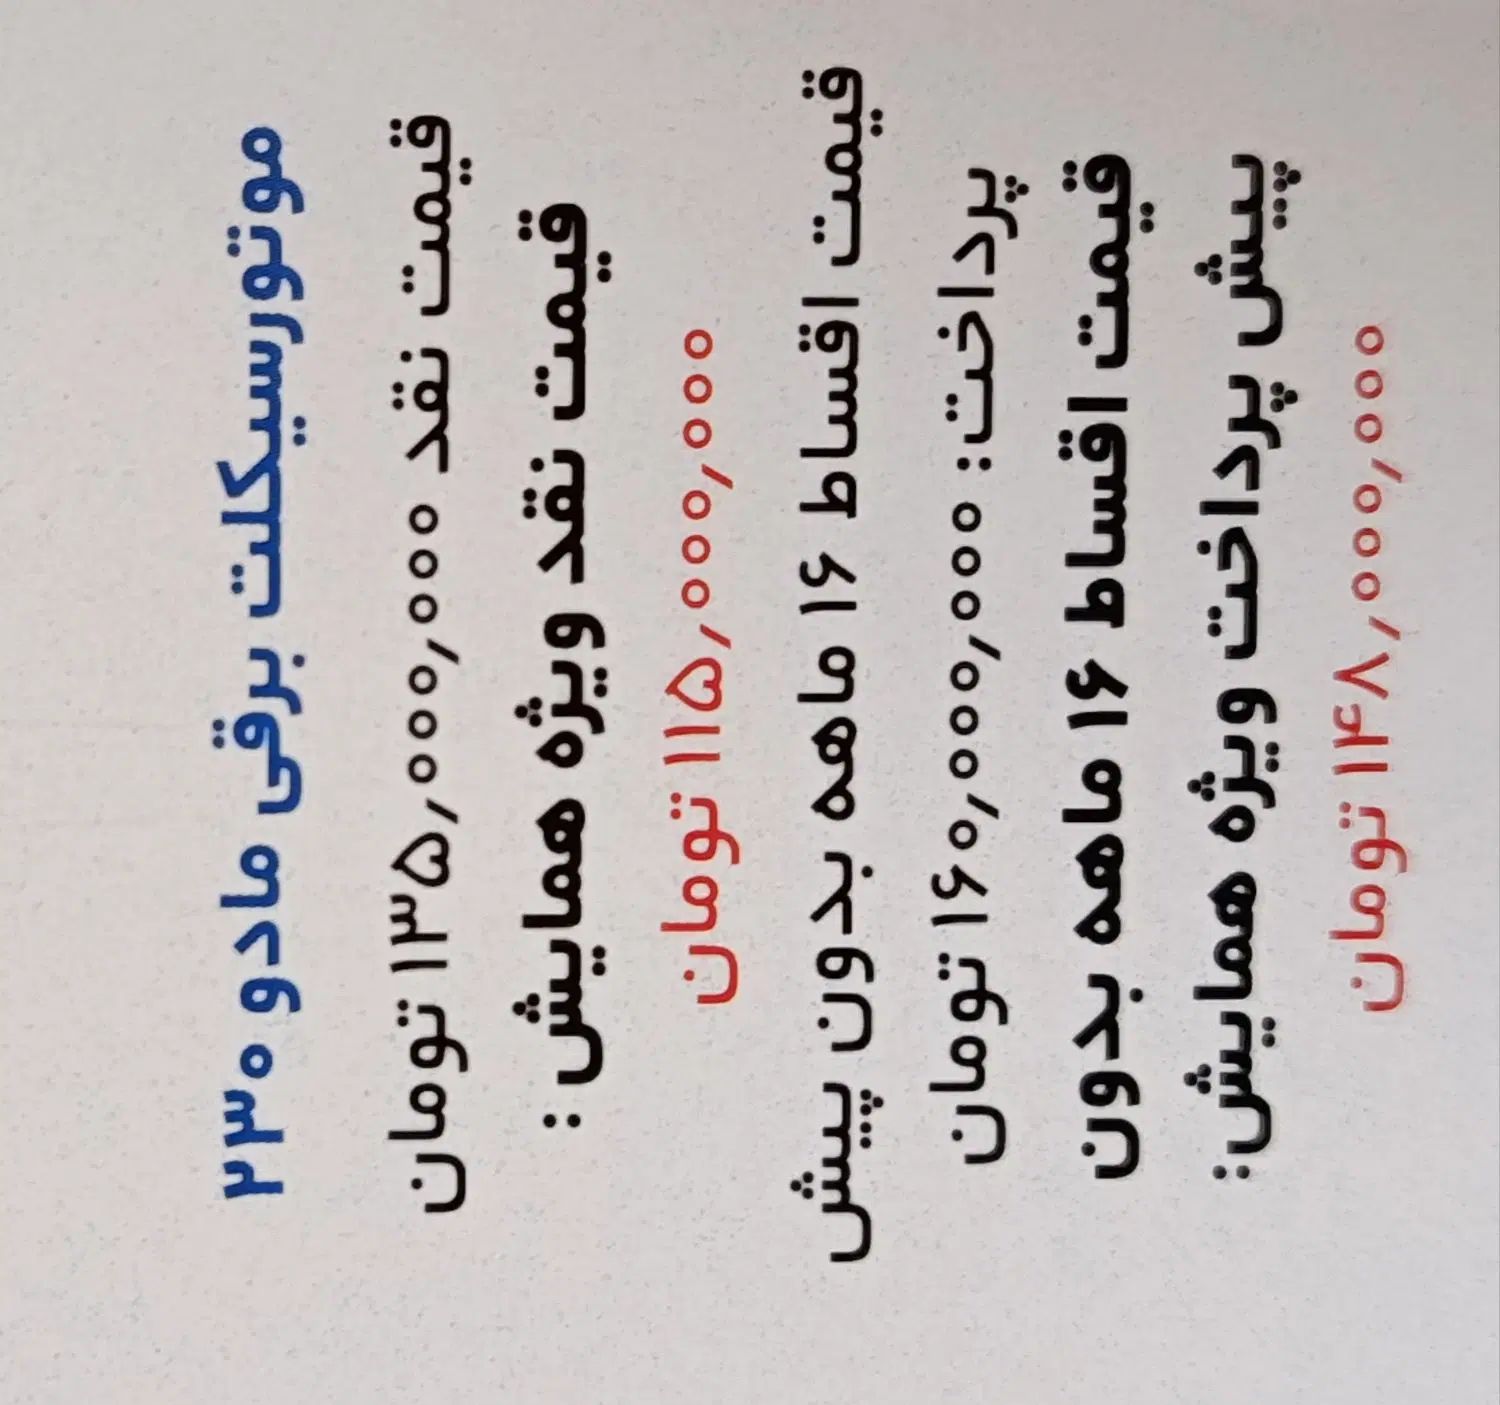 موتورسیکلت برقی مادو ۲۳۰
قیمت نقد ۱۳۵٬۰۰۰٬۰۰۰ تومان
قیمت نقد ویژه همایش :
۱۱۵٬۰۰۰٬۰۰۰ تومان
قیمت اقساط ۱۶ ماهه بدون پیش
پرداخت: ۱۶۰٬۰۰۰٬۰۰۰ تومان
قیمت اقساط ۱۶ ماهه بدون
پیش پرداخت ویژه همایش:
۱۴۸٬۰۰۰٬۰۰۰ تومان